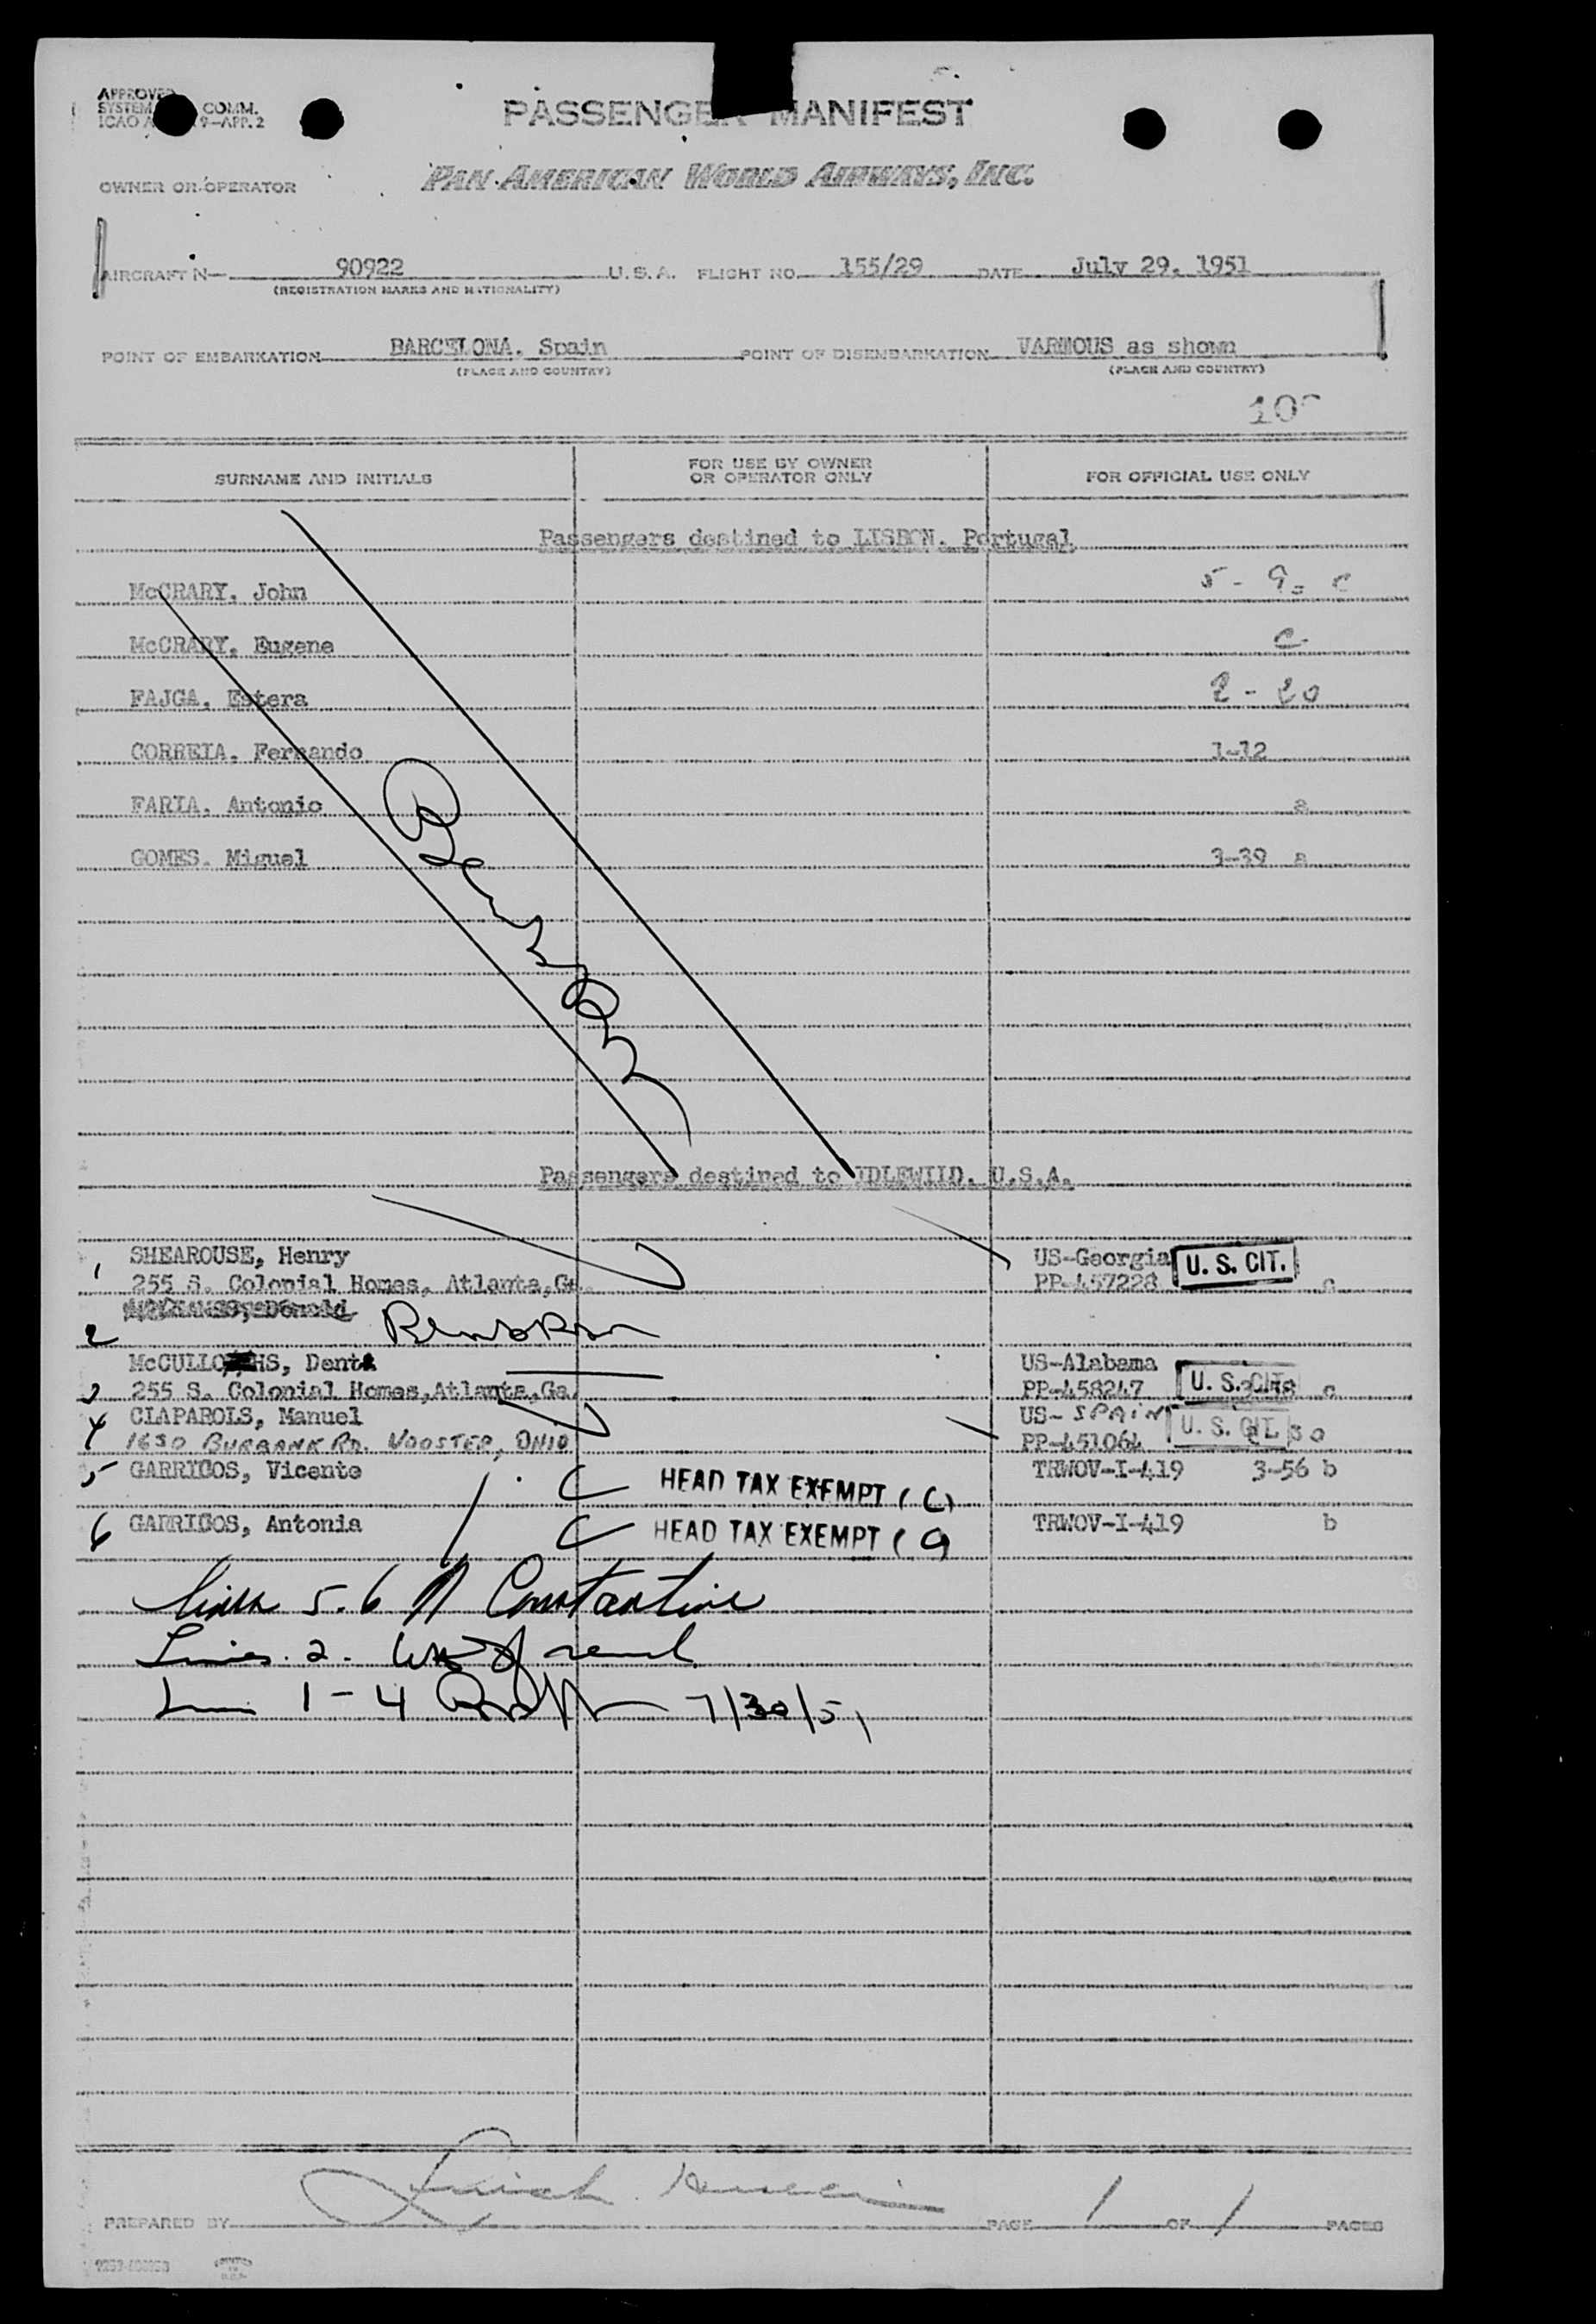 APPROVED
SYSTEM COMM.
ICAO A 9-APP. 2
PASSENGER MANIFEST
OWNER OR OPERATOR PAN AMERICAN WORLD AIRWAYS, INC.
AIRCRAFT N— 90922 U.S.A. FLIGHT NO. 155/29 DATE July 29, 1951
(REGISTRATION MARKS AND NATIONALITY)
POINT OF EMBARKATION BARCELONA, Spain POINT OF DISEMBARKATION VARIOUS as shown
(PLACE AND COUNTRY) (PLACE AND COUNTRY)
10
SURNAME AND INITIALS FOR USE BY OWNER OR OPERATOR ONLY FOR OFFICIAL USE ONLY
Passengers destined to LISBON, Portugal
McCRARY, John 5 - 9 c
McCRARY, Eugene c
FAJGA, Estera 2 - 20
CORREIA, Fernando 1-12
FARIA, Antonio a
GOMES, Miguel 3-39 a
Passengers destined to IDLEWILD, U.S.A.
1 SHEAROUSE, Henry US-Georgia U. S. CIT.
255 S. Colonial Homes, Atlanta, Ga. PP-457228 c
2
McCULLOHS, Dent US-Alabama
3 255 S. Colonial Homes, Atlanta, Ga. PP-458247 U. S. CIT. c
4 CLAPAROLS, Manuel US- SPAIN
1630 BURBANK RD. WOOSTER, OHIO PP-451064 U. S. CIT.
5 GARRIGOS, Vicente HEAD TAX EXEMPT (C) TRWOV-I-419 3-56 b
6 GARRIGOS, Antonia HEAD TAX EXEMPT ( TRWOV-I-419 b
Lines 5-6 Constantine
Lines 2-
1 - 4 7/30/51
PREPARED BY PAGE 1 OF 1 PAGES